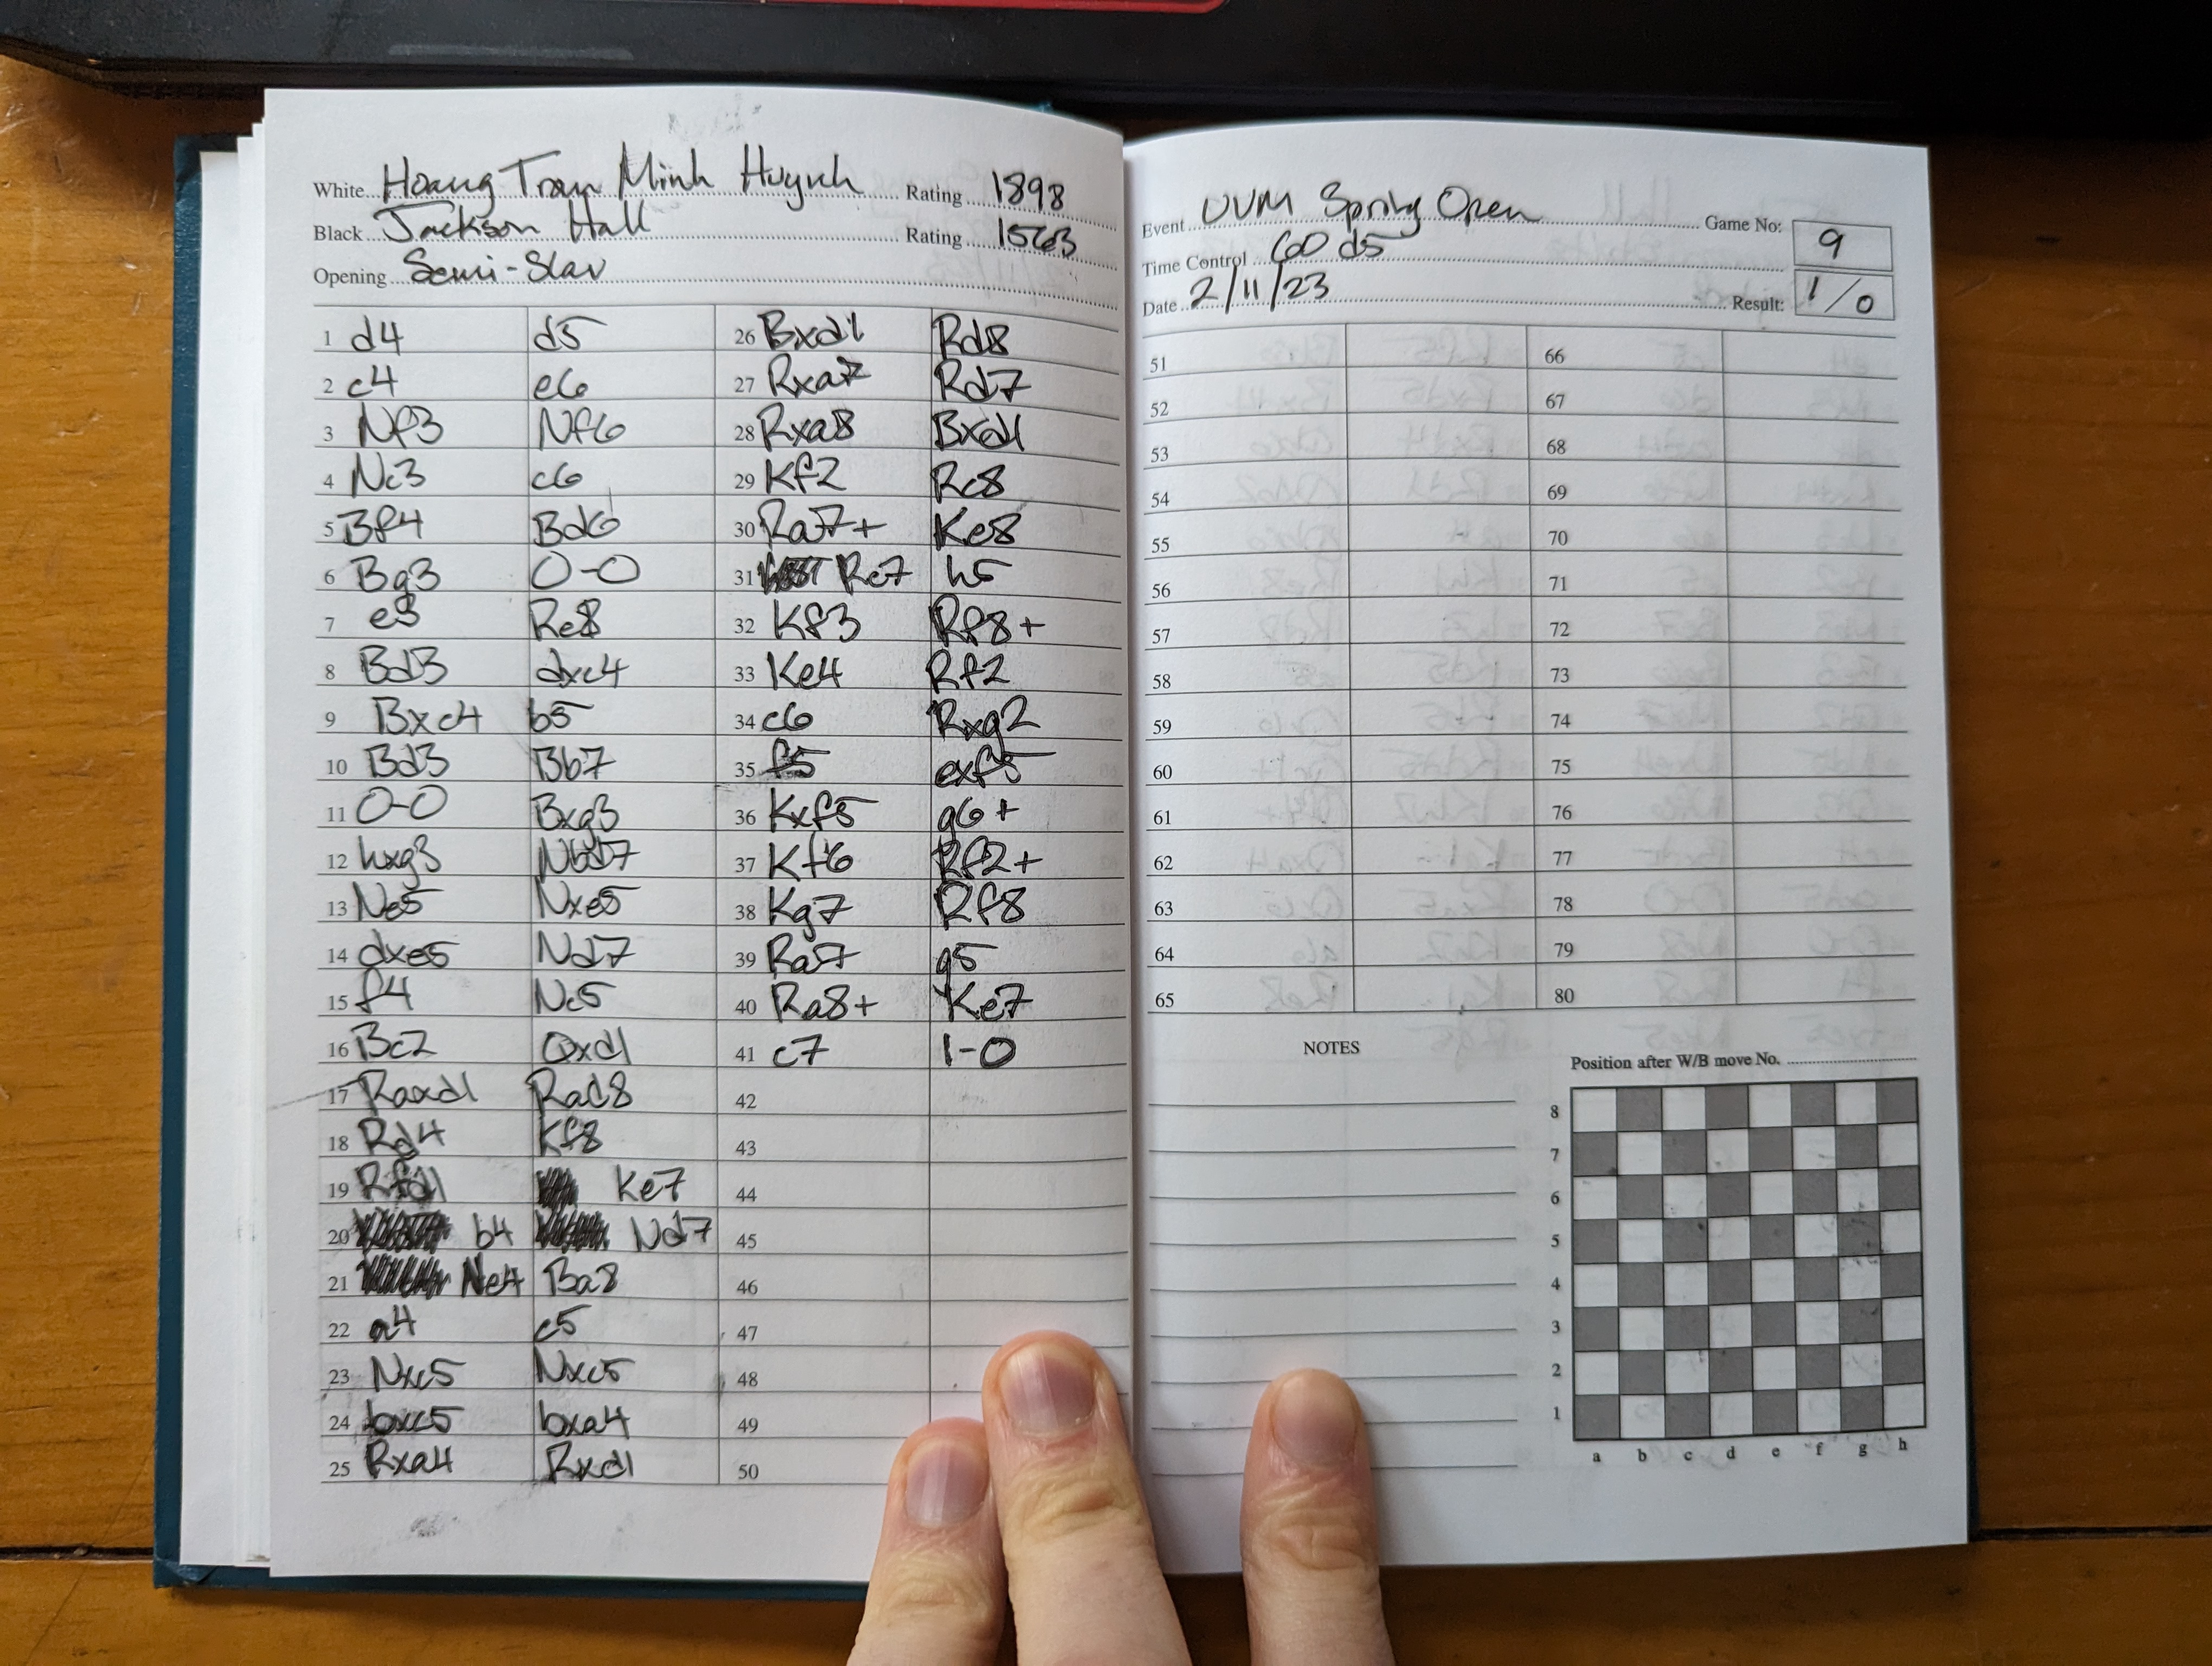 White Hoang Tran Minh Huynh Rating 1898
Black Jackson Hall Rating 1563
Opening Semi-Slav
1 d4 d5 26 Bxd1 Rd8
2 c4 e6 27 Rxa7 Rd7
3 Nf3 Nf6 28 Rxa8 Bxd1
4 Nc3 c6 29 Kf2 Rc8
5 Bf4 Bd6 30 Ra7+ Ke8
6 Bg3 O-O 31 Rc7 h5
7 e3 Re8 32 Kf3 Rf8+
8 Bd3 dxc4 33 Ke4 Rf2
9 Bxc4 b5 34 c6 Rxg2
10 Bd3 Bb7 35 f5 exf5
11 O-O Bxg3 36 Kxf5 g6+
12 hxg3 Nbd7 37 Kf6 Rf2+
13 Ne5 Nxe5 38 Kg7 Rf8
14 dxe5 Nd7 39 Ra7 g5
15 f4 Nc5 40 Ra8+ Ke7
16 Bc2 Qxd1 41 c7 1-0
17 Raxd1 Rad8 42
18 Rd4 Kf8 43
19 Rfd1 Ke7 44
20 b4 Nd7 45
21 Ne4 Ba8 46
22 a4 c5 47
23 Nxc5 Nxc5 48
24 bxc5 bxa4 49
25 Rxa4 Rxd1 50
Event UVM Spring Open Game No: 9
Time Control 60 d5
Date 2/11/23 Result: 1/0
51 66
52 67
53 68
54 69
55 70
56 71
57 72
58 73
59 74
60 75
61 76
62 77
63 78
64 79
65 80
NOTES
Position after W/B move No.
8
7
6
5
4
3
2
1
a b c d e f g h